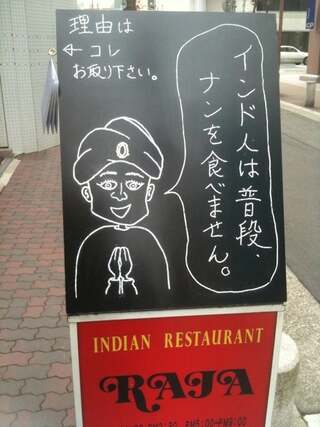 理由は
← コレ
お取り下さい。
インド人は普段、
ナンを食べません。
INDIAN RESTAURANT
RAJA